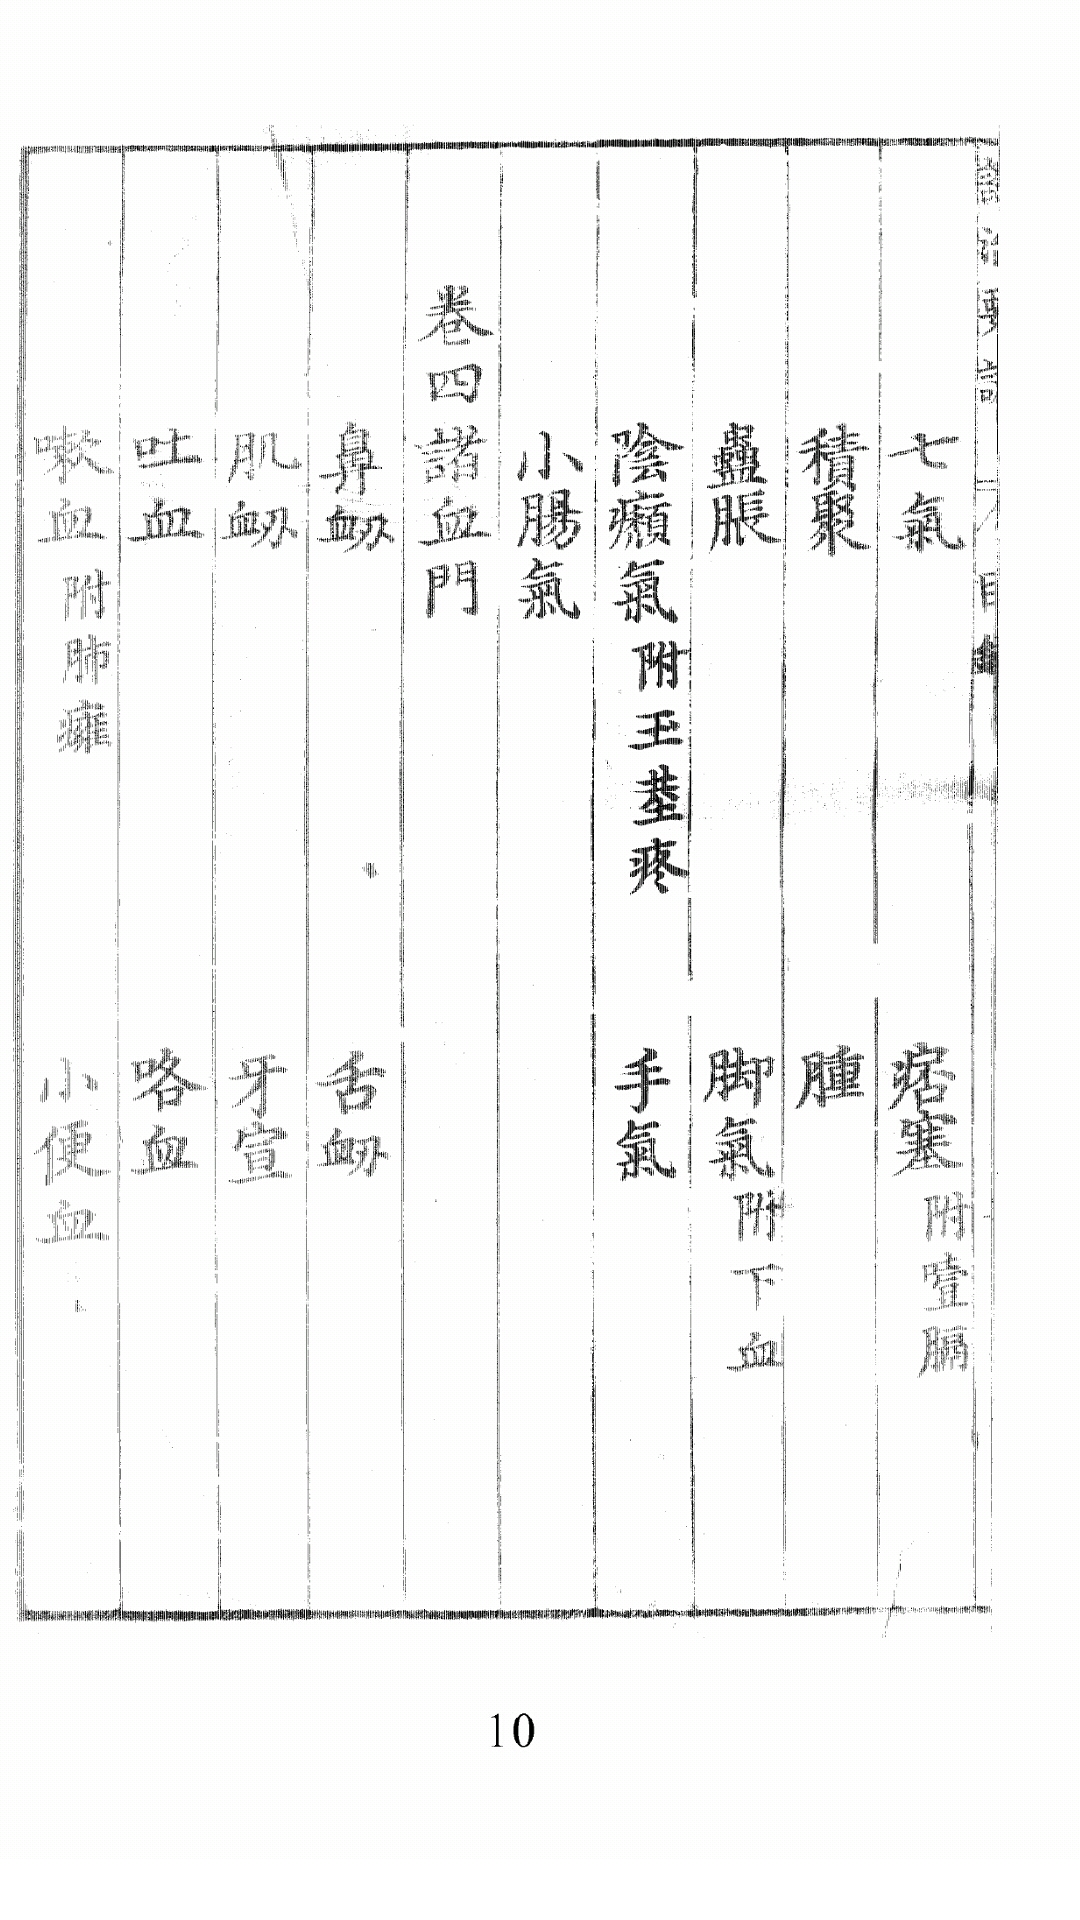 證治要訣 目錄
七氣 痞塞 附噎膈
積聚 腫
蠱脹 脚氣 附下血
陰癪氣 附玉莖疼 手氣
小腸氣
卷四諸血門
鼻衂 舌衂
肌衂 牙宣
吐血 咯血
嗽血 附肺癰 小便血
10